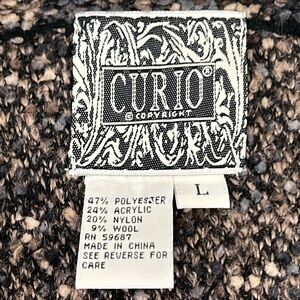 CURIO®
© COPYRIGHT
L
47% POLYESTER
24% ACRYLIC
20% NYLON
9% WOOL
RN 59687
MADE IN CHINA
SEE REVERSE FOR
CARE